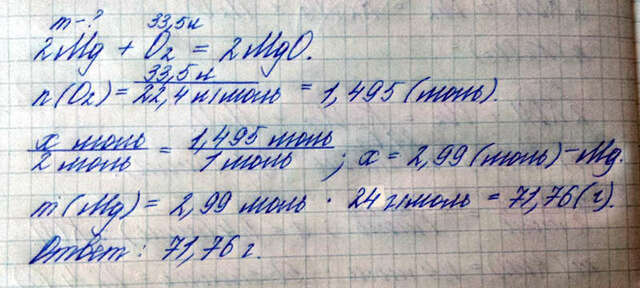 m-? 33,5л
2Mg + O₂ = 2MgO.
n(O₂) = 33,5 л / 22,4 л/моль = 1,495 (моль).
x моль / 2 моль = 1,495 моль / 1 моль ; x = 2,99 (моль) - Mg.
m(Mg) = 2,99 моль · 24 г/моль = 71,76 (г).
Ответ: 71,76 г.